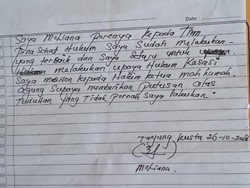 Date :
Saya Meliana Percaya kepada Tim
Penasehat Hukum Saya Sudah melakukan
yang terbaik dan Saya Setuju untuk
melakukan upaya Hukum Kasasi
Saya mohon kepada Hakim ketua mahkamah
Agung Supaya memberikan Putusan atas
Tuduhan yang Tidak Pernah Saya lakukan.
Tanjung Gusta 26-10-2018
Meliana.